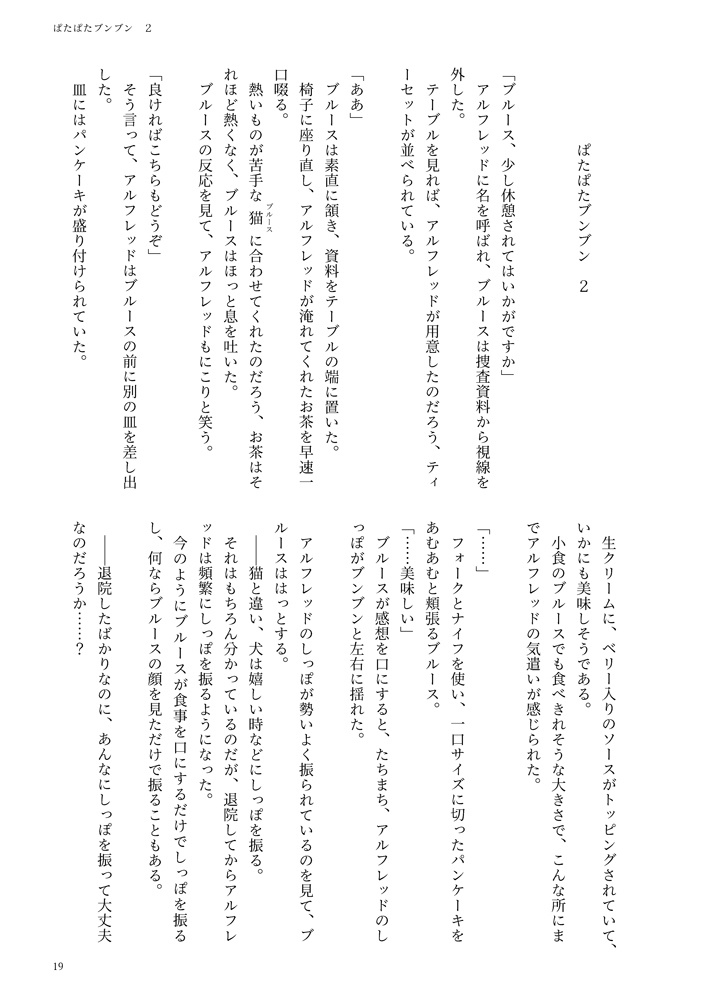 ぱたぱたブンブン　２
ぱたぱたブンブン　２
「ブルース、少し休憩されてはいかがですか」
アルフレッドに名を呼ばれ、ブルースは捜査資料から視線を
外した。
テーブルを見れば、アルフレッドが用意したのだろう、ティ
ーセットが並べられている。
「ああ」
ブルースは素直に頷き、資料をテーブルの端に置いた。
椅子に座り直し、アルフレッドが淹れてくれたお茶を早速一
口啜る。
熱いものが苦手な猫に合わせてくれたのだろう、お茶はそ
ブルース
れほど熱くなく、ブルースはほっと息を吐いた。
ブルースの反応を見て、アルフレッドもにこりと笑う。
「良ければこちらもどうぞ」
そう言って、アルフレッドはブルースの前に別の皿を差し出
した。
皿にはパンケーキが盛り付けられていた。
生クリームに、ベリー入りのソースがトッピングされていて、
いかにも美味しそうである。
小食のブルースでも食べきれそうな大きさで、こんな所にま
でアルフレッドの気遣いが感じられた。
「……」
フォークとナイフを使い、一口サイズに切ったパンケーキを
あむあむと頬張るブルース。
「……美味しい」
ブルースが感想を口にすると、たちまち、アルフレッドのし
っぽがブンブンと左右に揺れた。
アルフレッドのしっぽが勢いよく振られているのを見て、ブ
ルースははっとする。
――猫と違い、犬は嬉しい時などにしっぽを振る。
それはもちろん分かっているのだが、退院してからアルフレ
ッドは頻繁にしっぽを振るようになった。
今のようにブルースが食事を口にするだけでしっぽを振る
し、何ならブルースの顔を見ただけで振ることもある。
――退院したばかりなのに、あんなにしっぽを振って大丈夫
なのだろうか……？
19